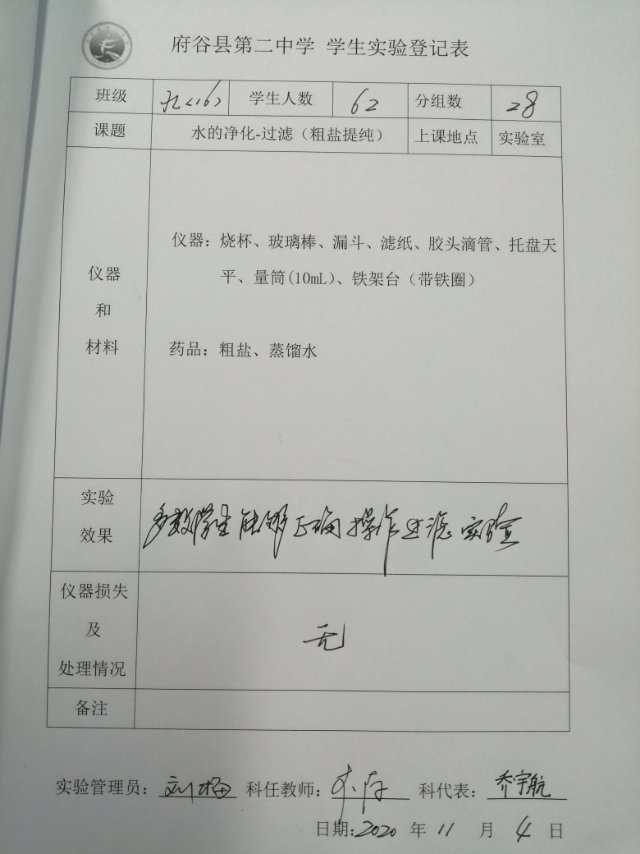 府谷县第二中学 学生实验登记表
班级 九(16) 学生人数 62 分组数 28
课题 水的净化-过滤（粗盐提纯） 上课地点 实验室
仪器和材料
仪器：烧杯、玻璃棒、漏斗、滤纸、胶头滴管、托盘天
平、量筒(10mL)、铁架台（带铁圈）
药品：粗盐、蒸馏水
实验效果 多数学生能够正确操作过滤实验
仪器损失及处理情况 无
备注
实验管理员：刘梅 科任教师： 科代表：乔宇航
日期:2020 年 11 月 4 日